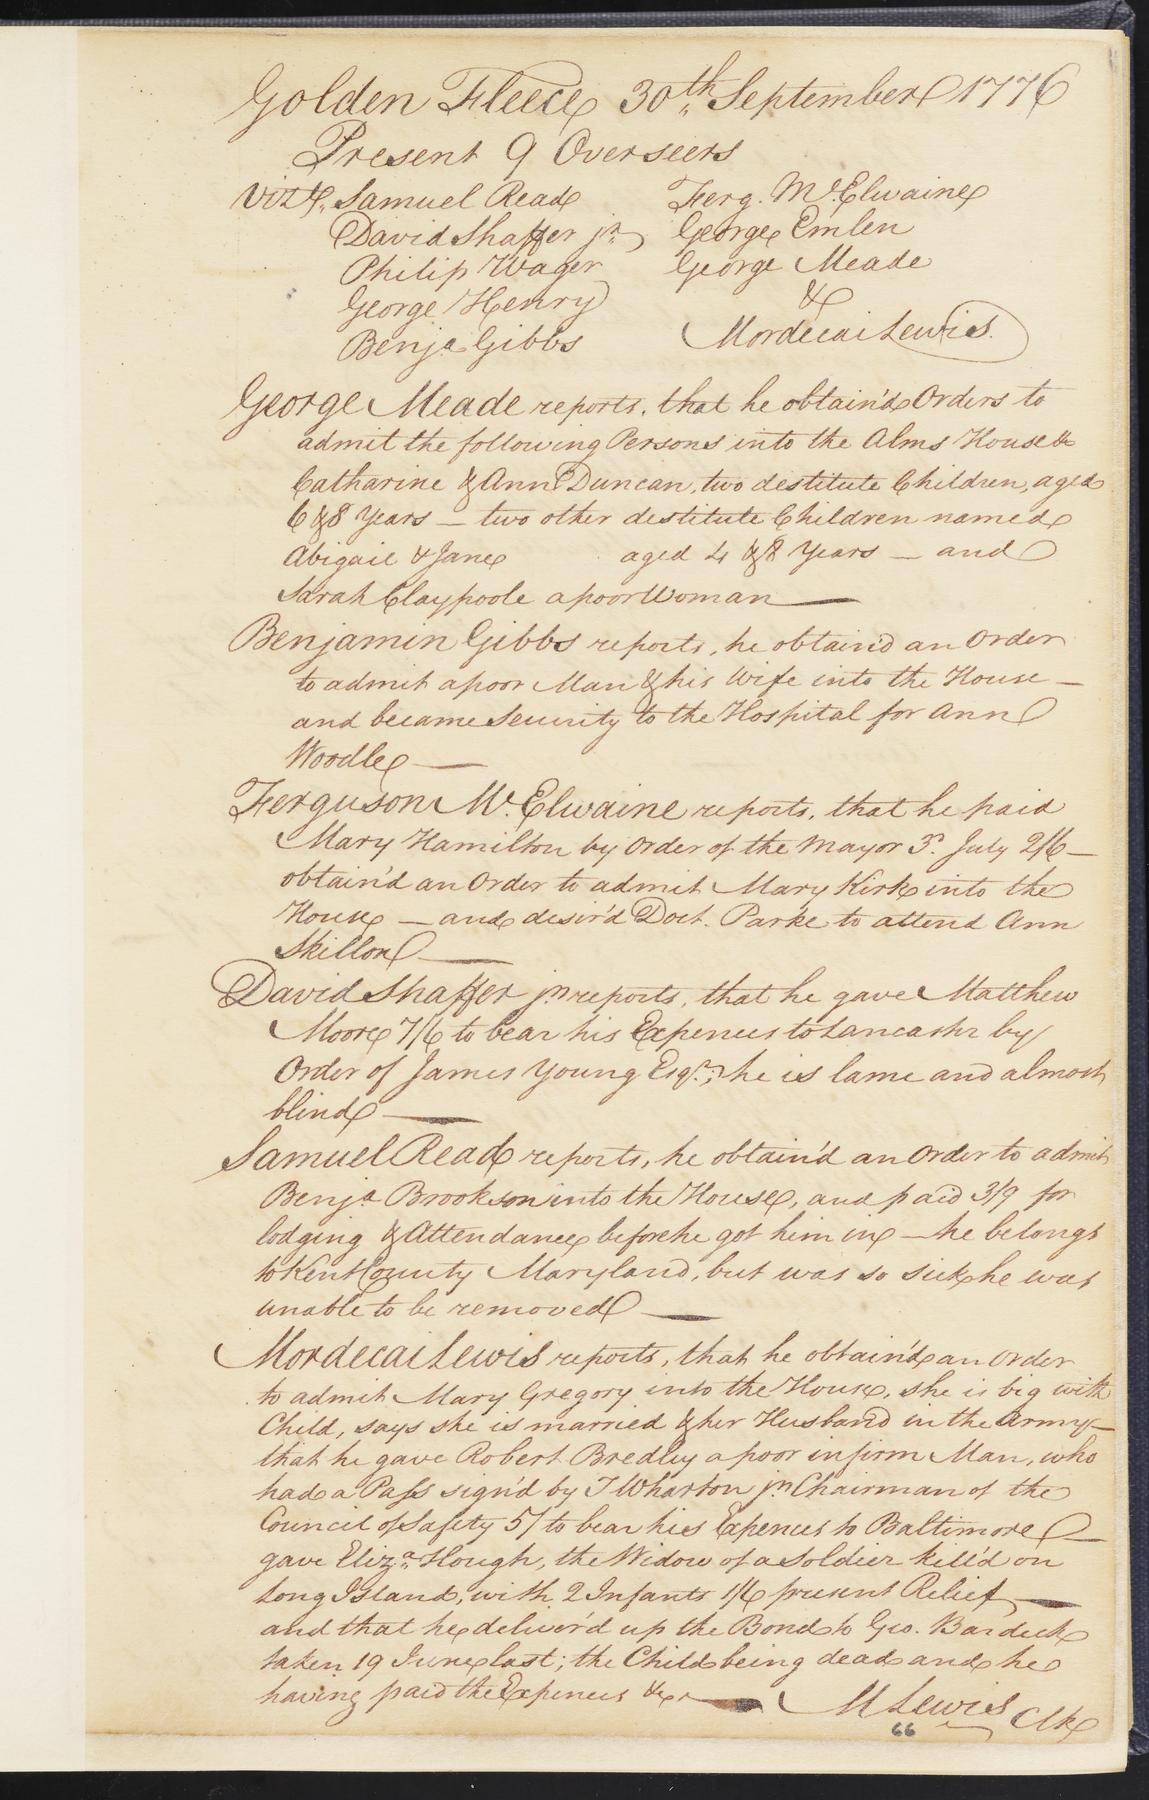 Golden Fleece 30th September 1776
Present 9 Overseers
Vizt. Samuel Read Ferg. McElwaine
David Shaffer jr. George Emlen
Philip Wager George Meade
George Henry &
Benja Gibbs Mordecai Lewis.
George Meade reports, that he obtain'd Orders to
admit the following Persons into the Alms House &c
Catharine & Ann Duncan, two destitute Children, aged
6 & 8 Years — two other destitute Children named
Abigail & Jane aged 4 & 8 Years — and
Sarah Claypoole a poor Woman —
Benjamin Gibbs reports, he obtain'd an Order
to admit a poor Man & his Wife into the House —
and became Security to the Hospital for Ann
Woodle —
Ferguson McElwaine reports, that he paid
Mary Hamilton by Order of the Mayor 3d. July 2/6 —
obtain'd an Order to admit Mary Kirk into the
House — and desir'd Doct. Parke to attend Ann
Skillon —
David Shaffer jr reports, that he gave Matthew
Moore 7/6 to bear his Expences to Lancastr by
Order of James Young Esqr.; he is lame and almost
blind —
Samuel Read reports, he obtain'd an Order to admit
Benja Brookson into the House, and paid 3/9 for
lodging & Attendance before he got him in — he belongs
to Kent County Maryland, but was so sick he was
unable to be removed —
Mordecai Lewis reports, that he obtain'd an Order
to admit Mary Gregory into the House, she is big with
Child, says she is married & her Husband in the Army —
that he gave Robert Bredley a poor infirm Man, who
had a Pass sign'd by T Wharton jr Chairman of the
Council of Safety 5/ to bear his Expences to Baltimore —
gave Eliza. Hough, the Widow of a Soldier kill'd on
Long Island, with 2 Infants 1/6 present Relief —
and that he deliver'd up the Bond to Geo. Bardeck
taken 19 June last; the Child being dead and he
having paid the Expences &c — M Lewis Clk
66